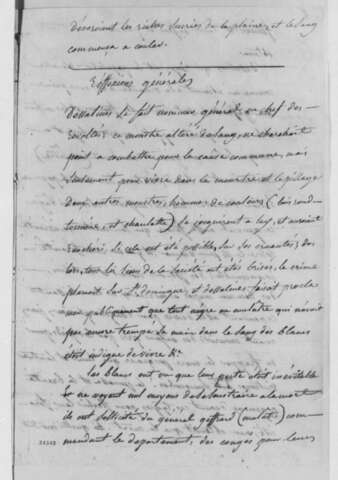 dévorèrent les riches sucries de la plaine, et le sang
commença a couler.
Effusions générales
Dessalines se fait nommer général en chef des
Révoltés; ce monstre altéré de sang, ne cherchait
point a combattre pour la cause commune, mais
seulement pour vivre dans le meurtre et le pillage
deux autres monstres, hommes de couleurs (
et se joignirent a lui, et auroient
Encheri, si cela eut été possible, sur ses cruautés; dès
lors, tous les liens de la Société ont étés brisés, le crime
planoit sur St. domingue, et dessalines faisait procla
mer publiquement que tout nègre ou mulatre qui n'avoit
pas encore trempé sa main dans le sang des blancs
étoit indigne de vivre &c.
Les blancs ont vu que leur perte étoit inévitable
ne voyant nul moyens de se soustraire a la mort
ils ont sollicité du général geffrard (mulatre) com-
mandant le département, des congés pour leurs